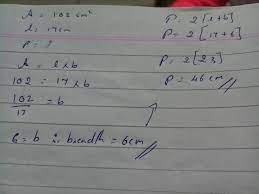 A = 102 cm²
l = 17cm
P = ?
A = l × b
102 = 17 × b
102/17 = b
6 = b ∴ breadth = 6cm
P = 2[l+b]
P = 2[17+6]
P = 2[23]
P = 46cm